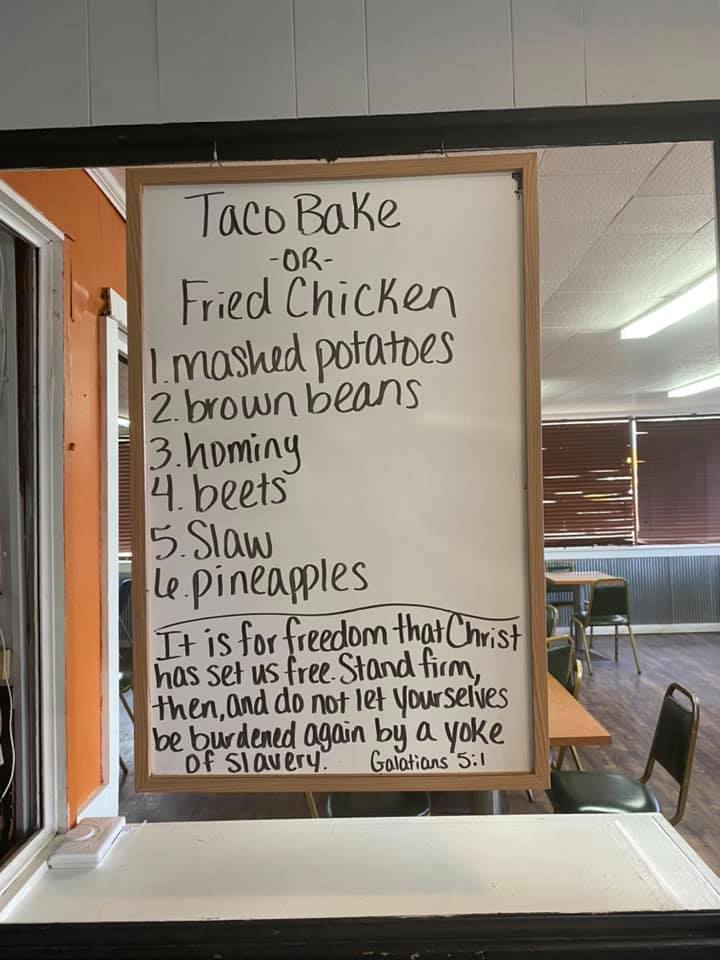 Taco Bake
-OR-
Fried Chicken
1. mashed potatoes
2. brown beans
3. hominy
4. beets
5. Slaw
6. pineapples
It is for freedom that Christ
has set us free. Stand firm,
then, and do not let yourselves
be burdened again by a yoke
of slavery. Galatians 5:1